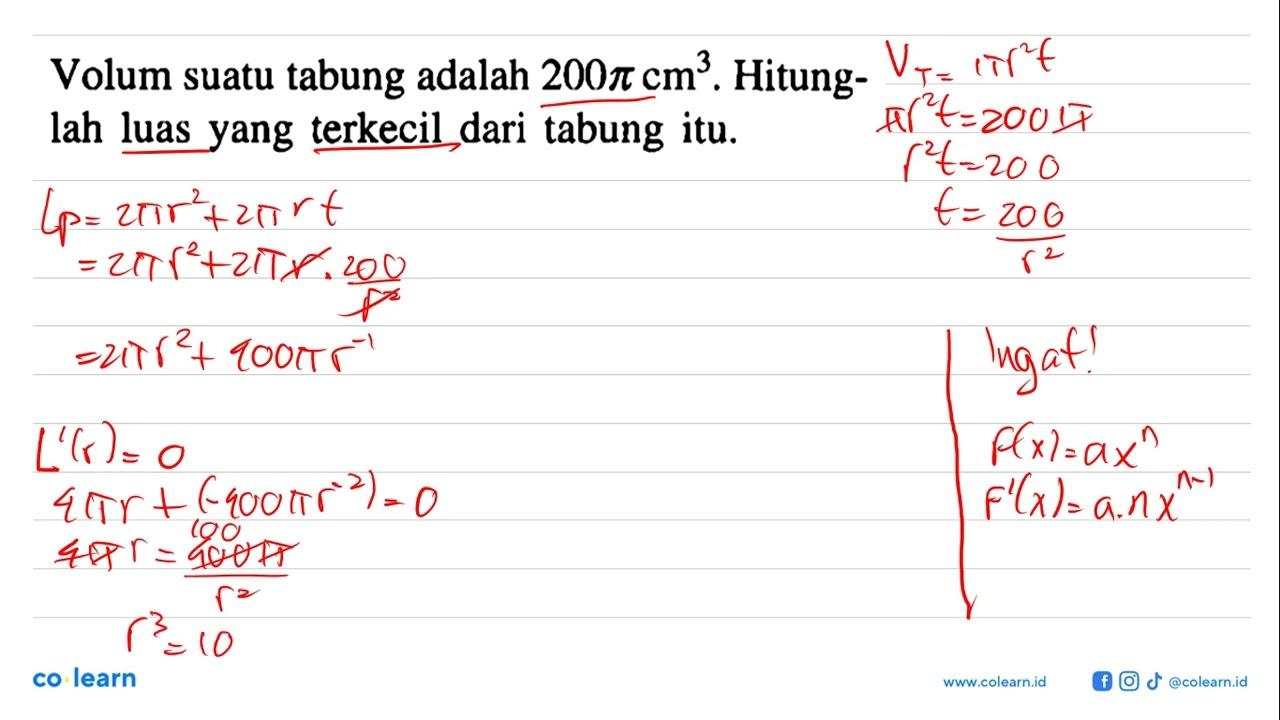 Volum suatu tabung adalah 200π cm³. Hitung-
lah luas yang terkecil dari tabung itu.
V_T = πr²t
πr²t = 200π
r²t = 200
t = 200/r²
Lp = 2πr² + 2πrt
= 2πr² + 2πr . 200/r²
= 2πr² + 400πr⁻¹
L'(r) = 0
4πr + (-400πr⁻²) = 0
100
4πr = 400π/r²
r³ = 10
Ingat!
F(x) = axⁿ
F'(x) = a.nxⁿ⁻¹
co learn
www.colearn.id
@colearn.id